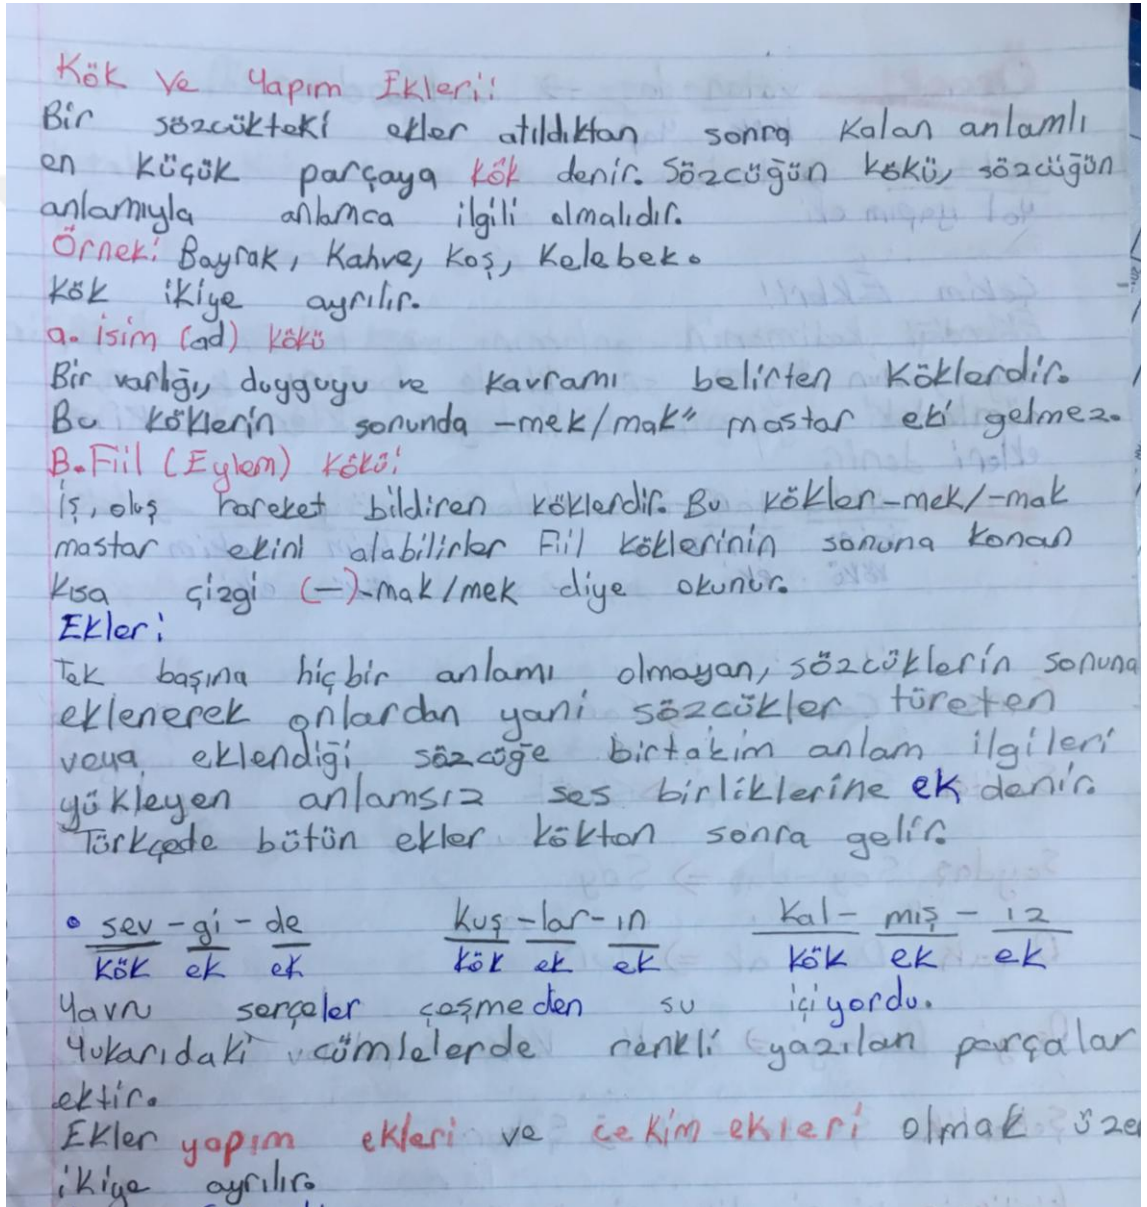 Kök Ve Yapım Ekleri!
Bir sözcükteki ekler atıldıktan sonra kalan anlamlı
en küçük parçaya kök denir. Sözcüğün kökü, sözcüğün
anlamıyla anlamca ilgili olmalıdır.
Örnek: Bayrak, Kahve, Koş, Kelebek.
Kök ikiye ayrılır.
a. isim (ad) kökü
Bir varlığı, duyguyu ve kavramı belirten köklerdir.
Bu köklerin sonunda -mek/mak" mastar eki gelmez.
B. Fiil (Eylem) kökü:
iş, oluş hareket bildiren köklerdir. Bu kökler -mek/-mak
mastar ekini alabilirler Fiil köklerinin sonuna konan
kısa çizgi (—)-mak/mek diye okunur.
Ekler:
Tek başına hiçbir anlamı olmayan, sözcüklerin sonuna
eklenerek onlardan yani sözcükler türeten
veya eklendiği sözcüğe birtakım anlam ilgileri
yükleyen anlamsız ses birliklerine ek denir.
Türkçede bütün ekler kökten sonra gelir.
• sev - gi - de kuş - lar - ın kal - mış - ız
kök ek ek kök ek ek kök ek ek
Yavru serçeler çeşmeden su içiyordu.
Yukarıdaki cümlelerde renkli yazılan parçalar
ektir.
Ekler yapım ekleri ve çekim ekleri olmak üze
ikiye ayrılır.